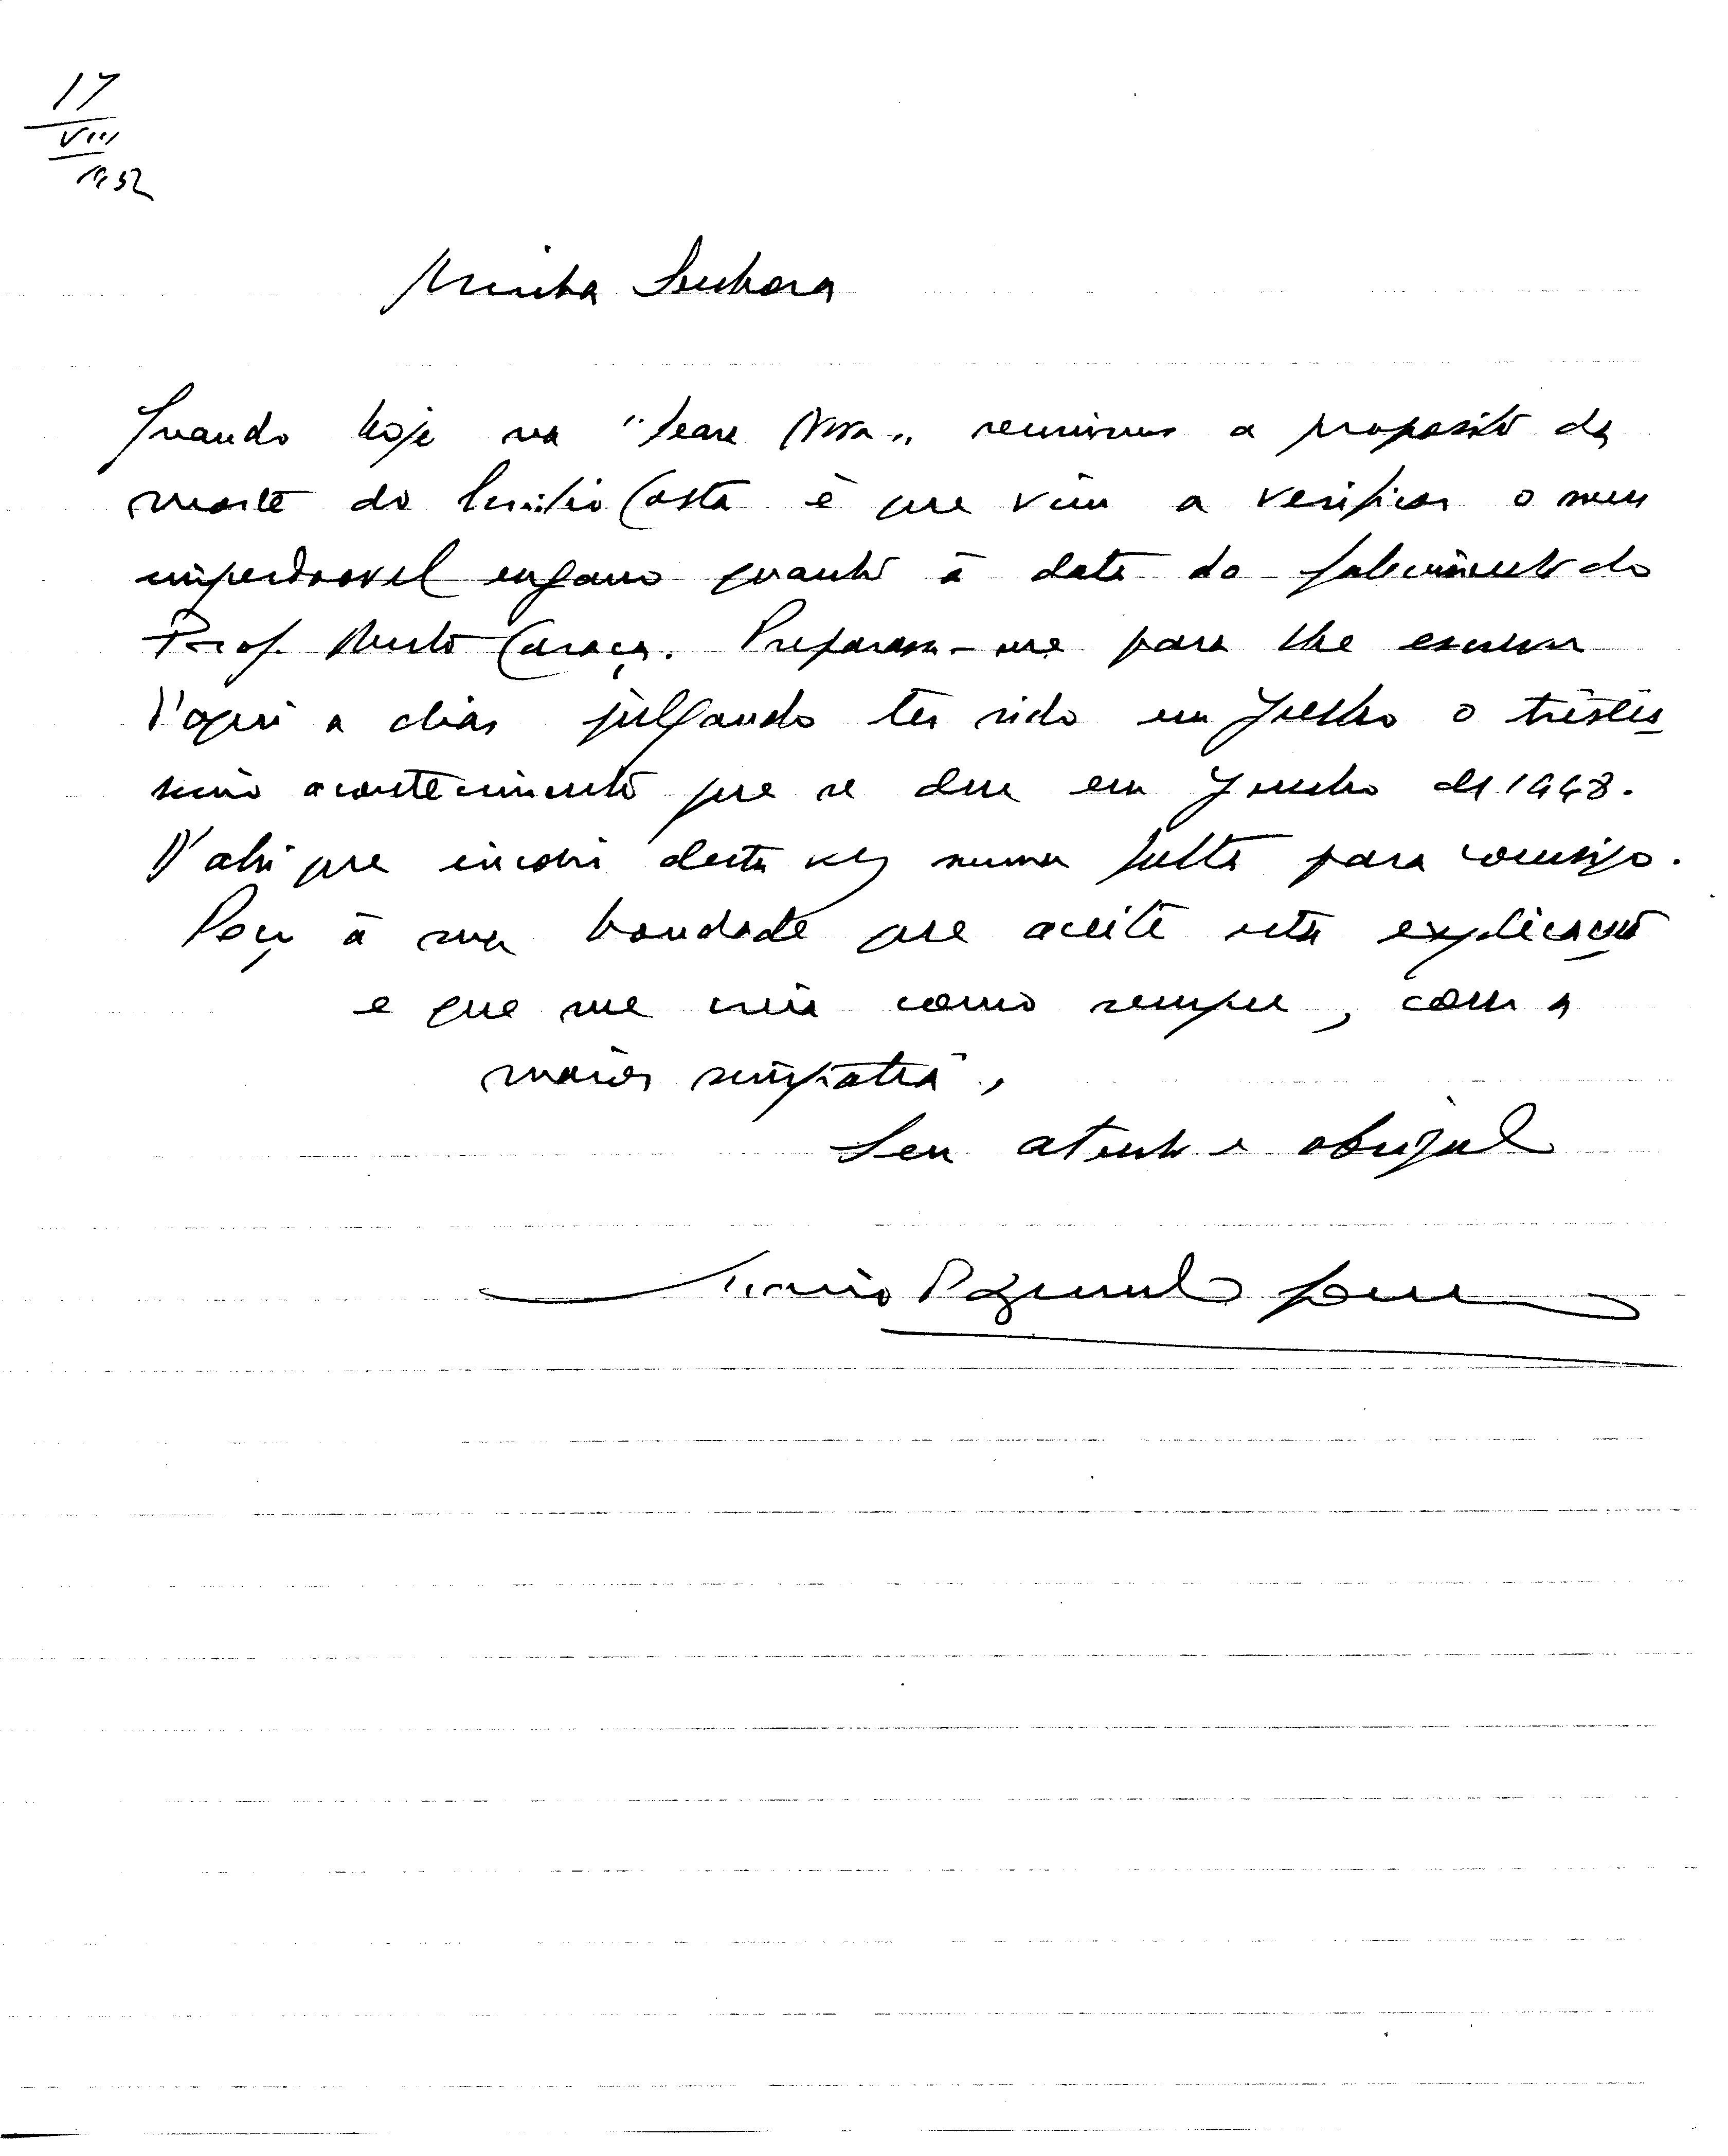 17
VIII
1952
Minha Senhora
Quando hoje na "Seara Nova" reunimos a proposito da
morte do Emilio Costa é que vim a verificar o meu
imperdoavel engano quanto á data do falecimento do
Prof. Bento Caraça. Preparava-me para lhe escrever
D'aqui a dias julgando ter sido em Julho o tristis
simo acontecimento que se deu em Junho de 1948.
D'ahi que incorri desta vez numa falta para comsigo.
Peço á sua bondade que aceite esta explicação
e que me creia como sempre, com a
maior simpatia,
Seu atento e obrigado